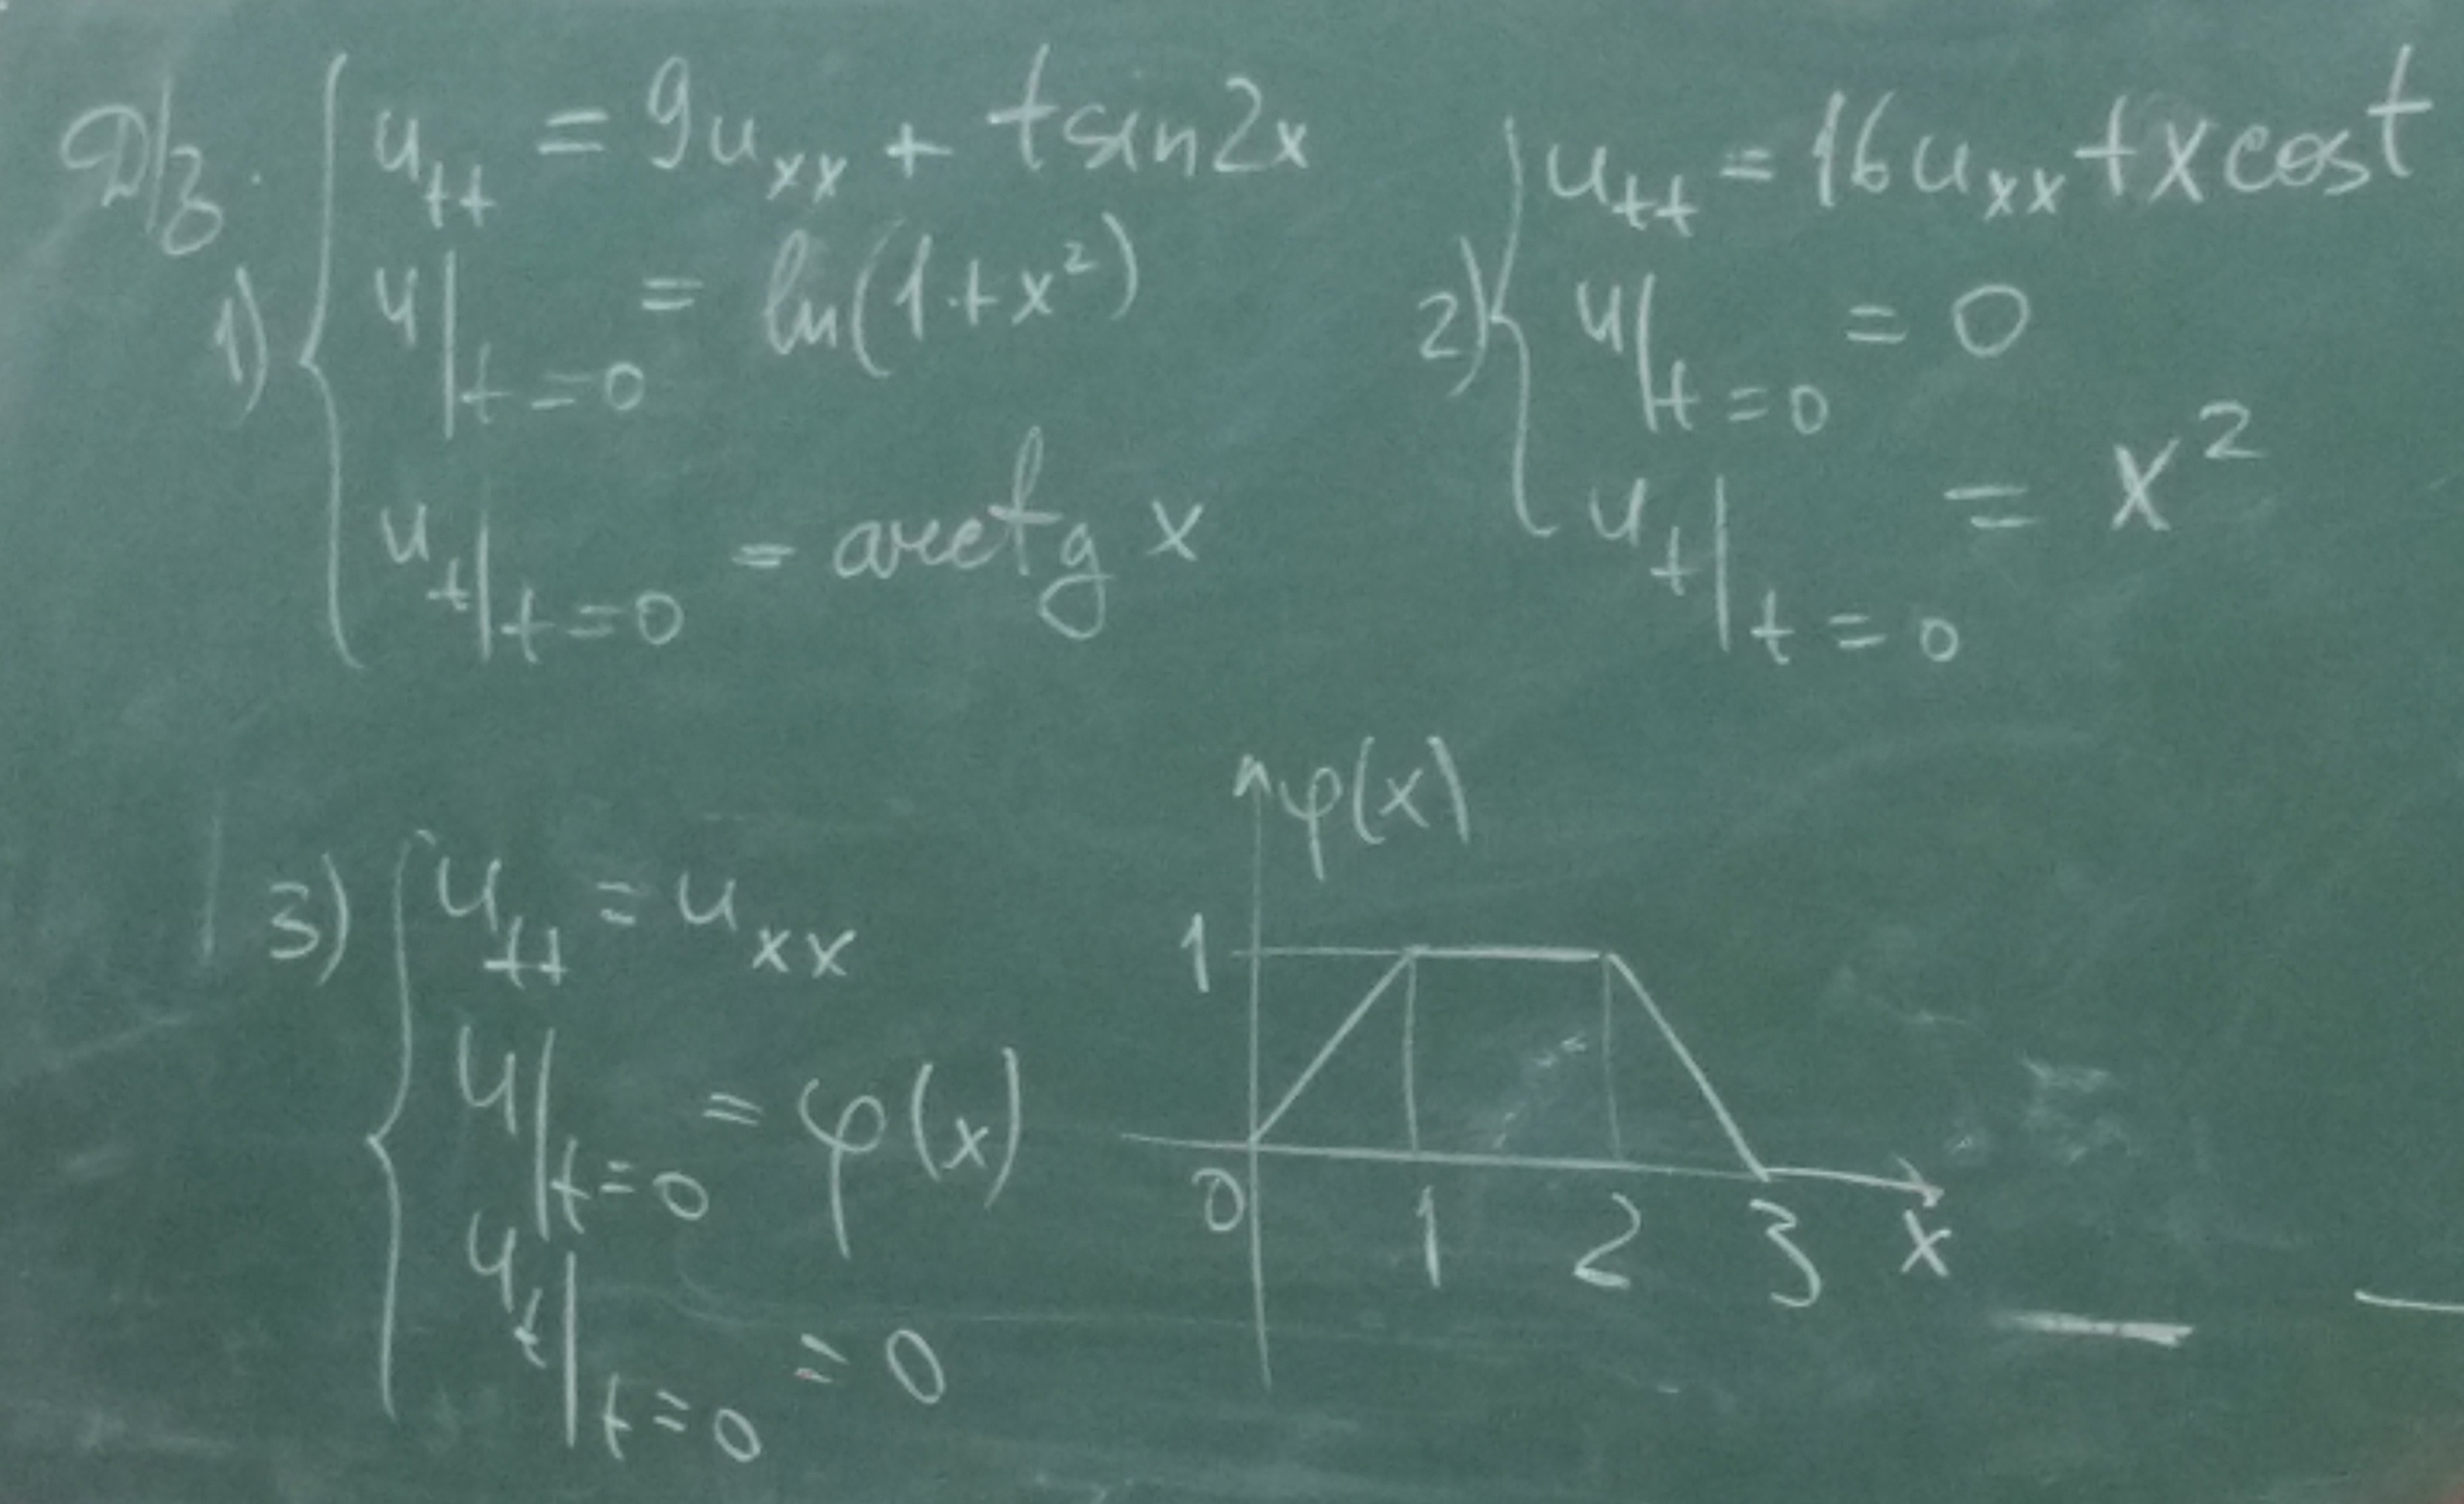 Д/з.
1) { u_tt = 9u_xx + t sin2x
u|_t=0 = ln(1+x²)
u_t|_t=0 = arctg x
2) { u_tt = 16u_xx + x cost
u|_t=0 = 0
u_t|_t=0 = x²
3) { u_tt = u_xx
u|_t=0 = φ(x)
u_t|_t=0 = 0
φ(x)
1
0 1 2 3 x